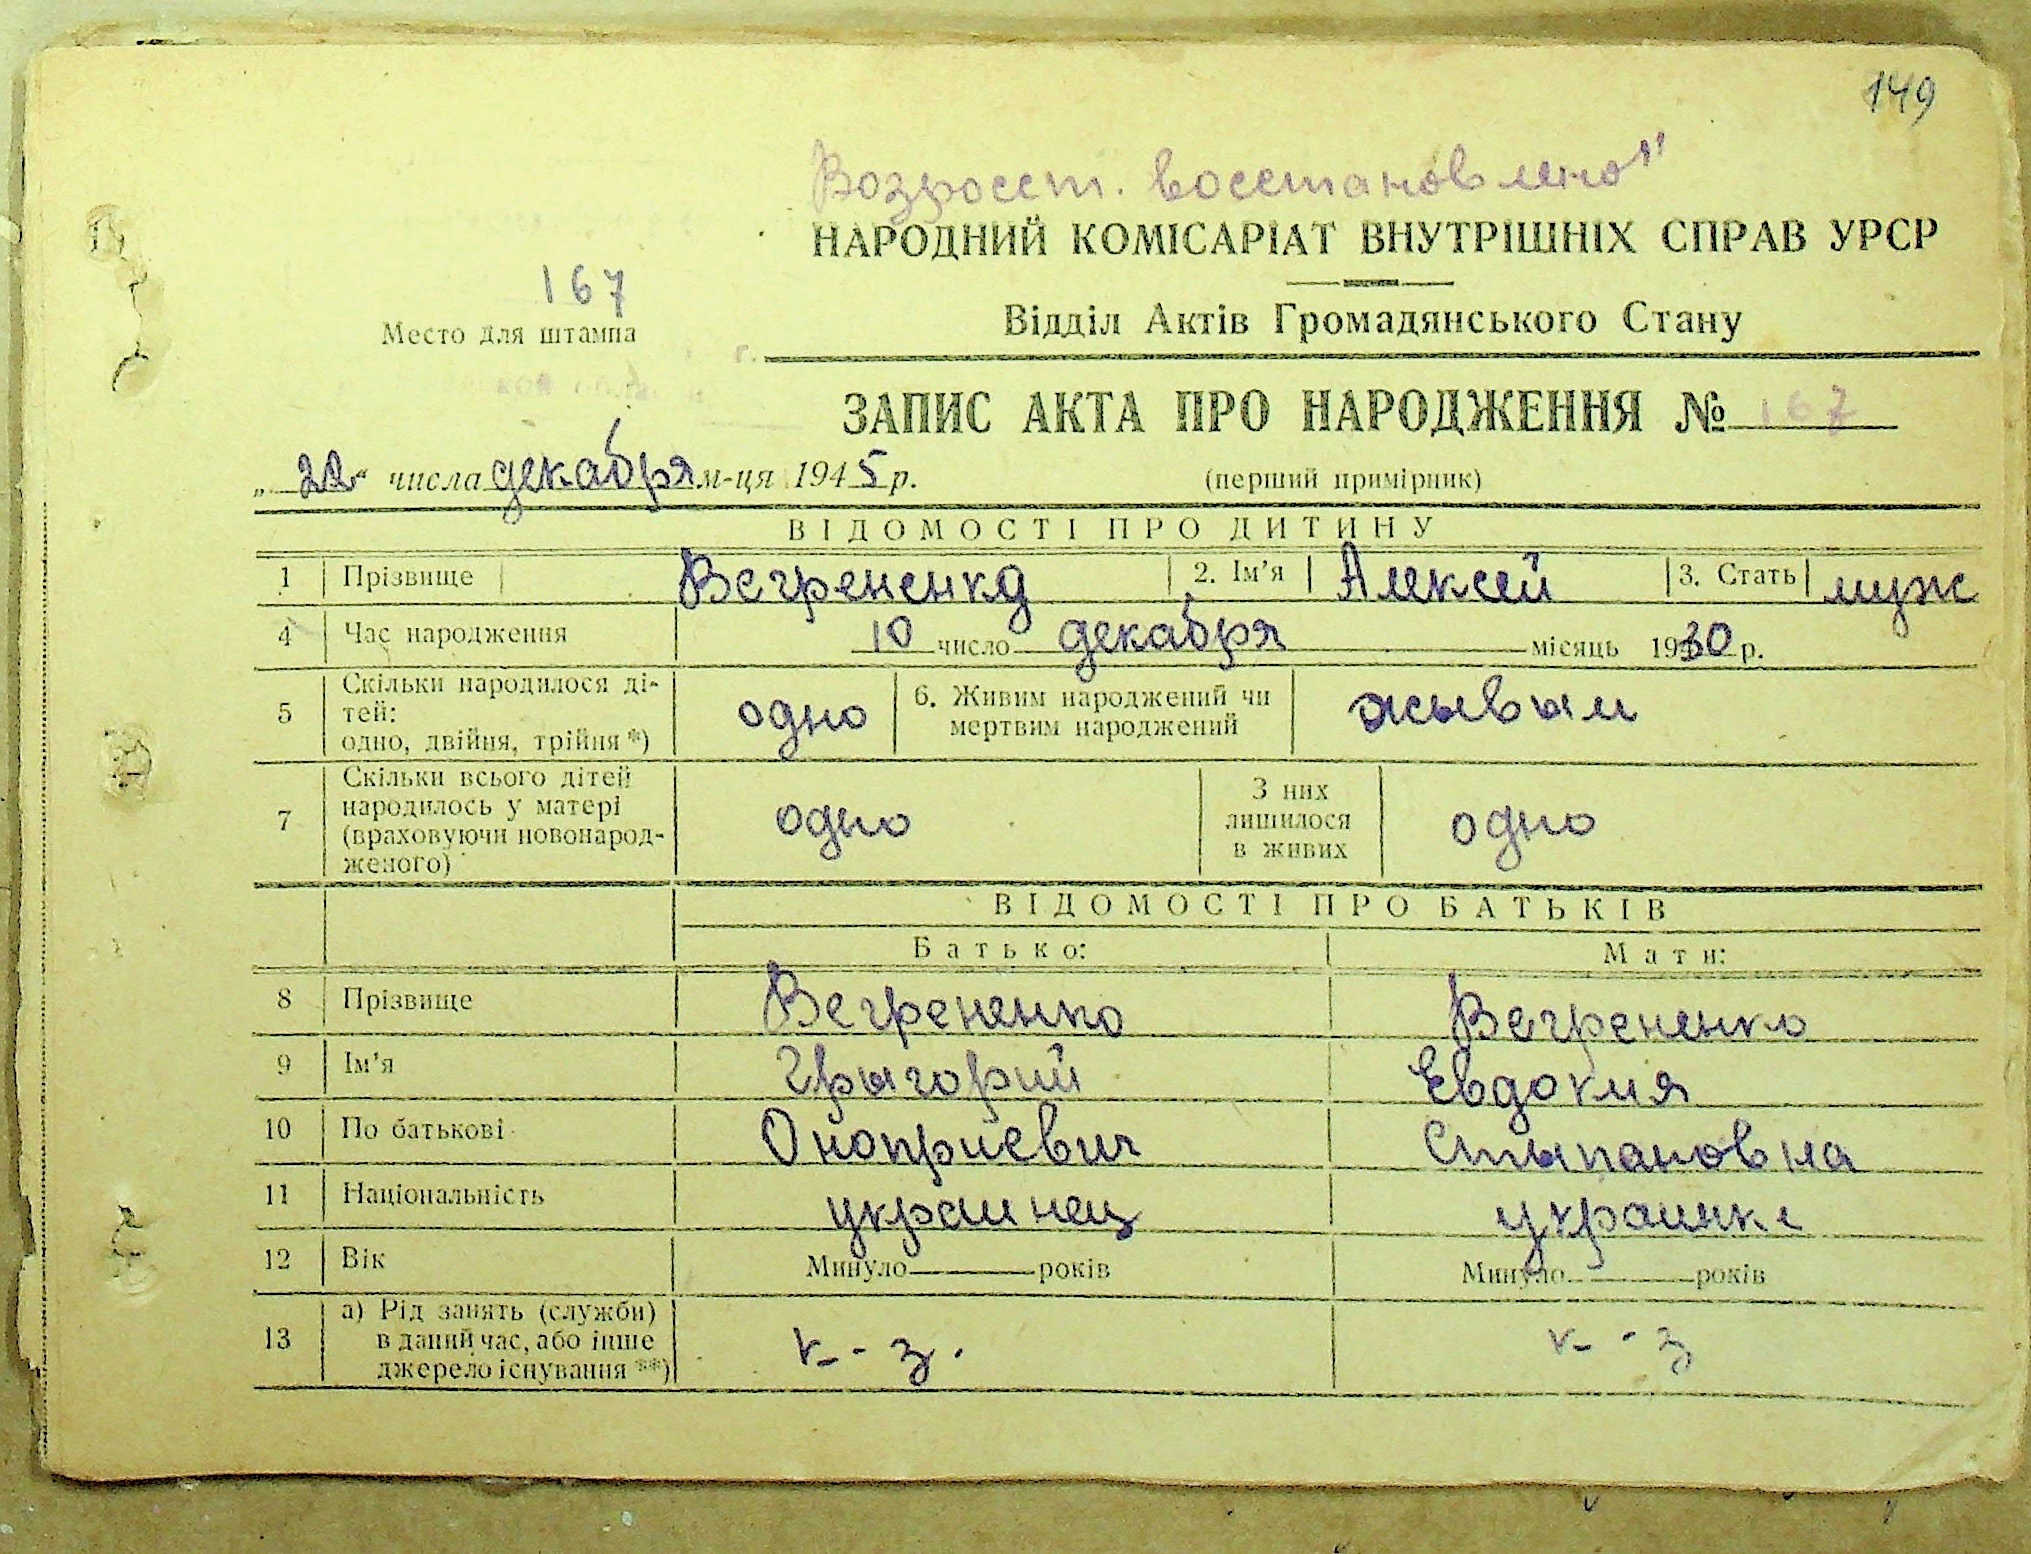 149
Возросст. восстановлено"
НАРОДНИЙ КОМІСАРІАТ ВНУТРІШНІХ СПРАВ УРСР
167
Место для штампа
Відділ Актів Громадянського Стану
ЗАПИС АКТА ПРО НАРОДЖЕННЯ № 167
„22" числа декабря м-ця 1945 р. (перший примірник)
ВІДОМОСТІ ПРО ДИТИНУ
1 Прізвище Вегрененко 2. Ім'я Алексей 3. Стать муж
4 Час народження 10 число декабря місяць 1930 р.
5 Скільки народилося ді-
тей:
одно, двійня, трійня *) одно 6. Живим народжений чи
мертвим народжений жывым
7 Скільки всього дітей
народилось у матері
(враховуючи новонарод-
женого) одно З них
лишилося
в живих одно
ВІДОМОСТІ ПРО БАТЬКІВ
Батько: Мати:
8 Прізвище Вегрененко Вегрененко
9 Ім'я Грыгорий Евдокия
10 По батькові Оноприевич Стыпановна
11 Національність украинец украинка
12 Вік Минуло років Минуло років
13 а) Рід занять (служби)
в даний час, або інше
джерело існування **) к-з. к-з